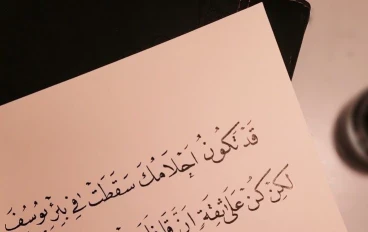 قَدْ تَكُونُ أَحْلَامُكَ سَقَطَتْ فِي بِئْرِ يُوسُفَ
لَكِنْ كُنْ عَلَى ثِقَةٍ إِنَّ